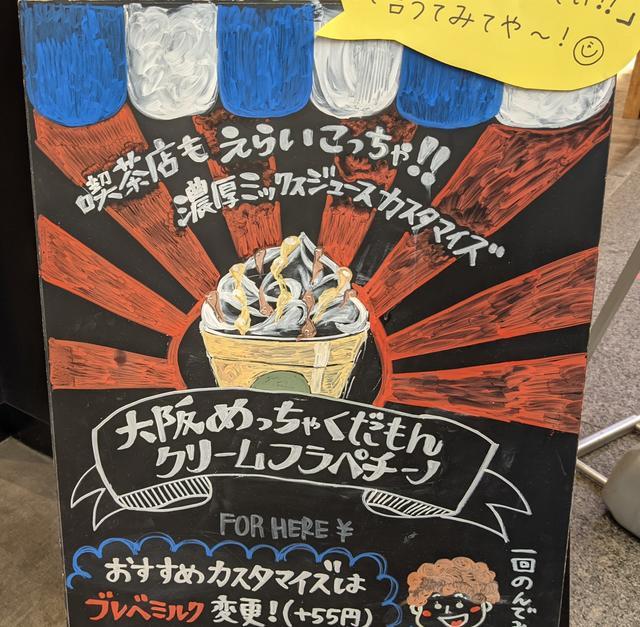 い!!」
言うてみてや〜!
喫茶店も えらいこっちゃ!!
濃厚ミックスジュースカスタマイズ
大阪めっちゃくだもん
クリームフラペチーノ
FOR HERE ¥
おすすめカスタマイズは
ブレベミルク 変更!(+55円)
一回のんでみ